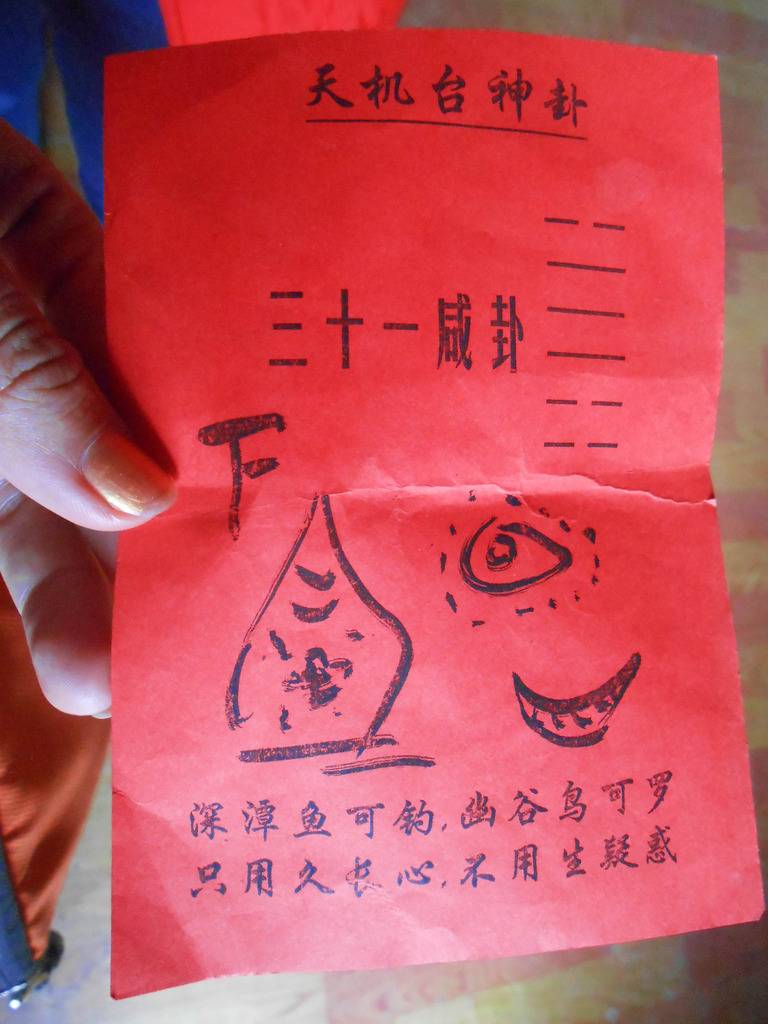 天机台神卦
三十一咸卦
下
深潭鱼可钓,幽谷鸟可罗
只用久长心,不用生疑惑